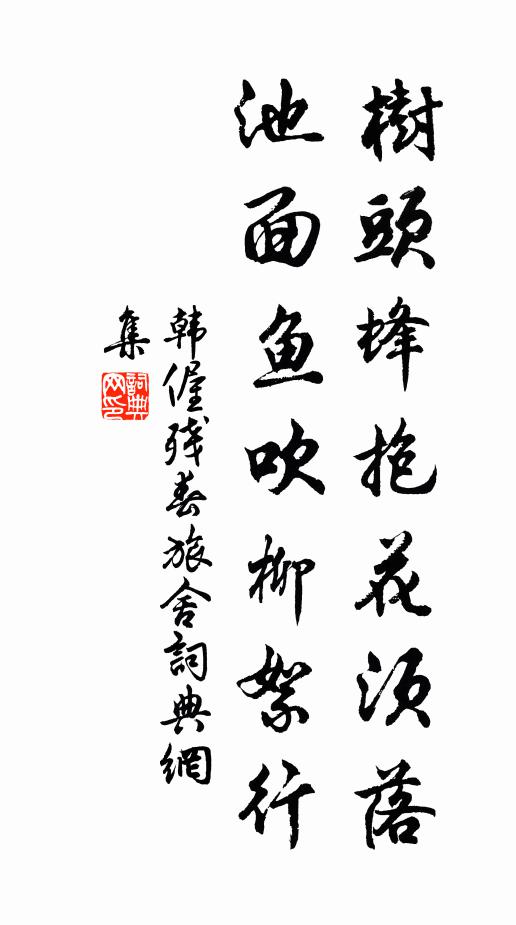 樹頭蜂抱花須落
池面鱼吹柳絮行
韩偓残春旅舍詞典網
集
詞典网印